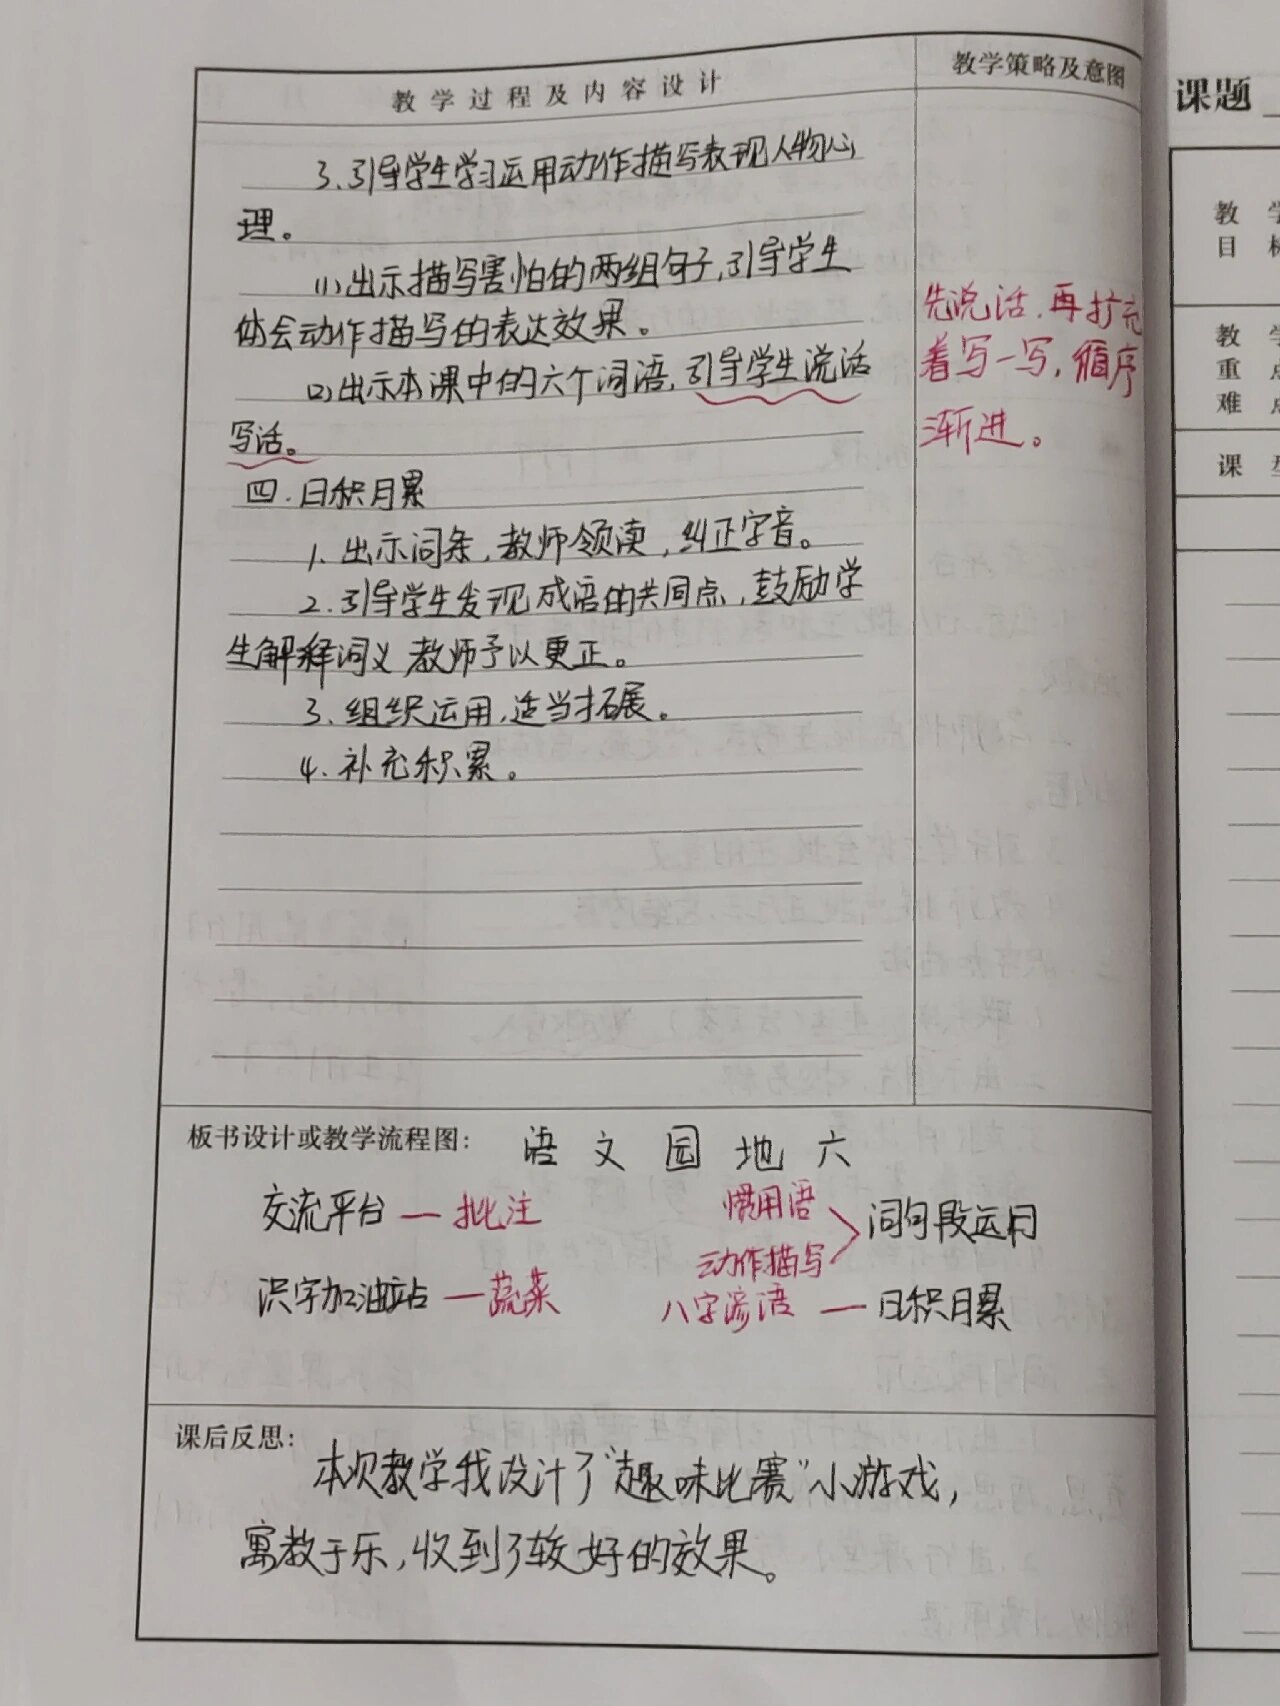 教学过程及内容设计
教学策略及意图
3.引导学生学习运用动作描写表现人物心
理。
(1)出示描写害怕的两组句子,引导学生
体会动作描写的表达效果。
(2)出示本课中的六个词语,引导学生说话
写话。
四.日积月累
1.出示词条,教师领读,纠正字音。
2.引导学生发现成语的共同点,鼓励学
生解释词义 教师予以更正。
3.组织运用,适当拓展。
4.补充积累。
先说话.再扩充
着写一写,循序
渐进。
板书设计或教学流程图:
语文园地六
交流平台—批注
识字加油站—蔬菜
惯用语
动作描写
词句段运用
八字谚语—日积月累
课后反思:
本次教学我设计了“趣味比赛”小游戏,
寓教于乐,收到了较好的效果。
课题
教 学
目 标
教 学
重 点
难 点
课 型